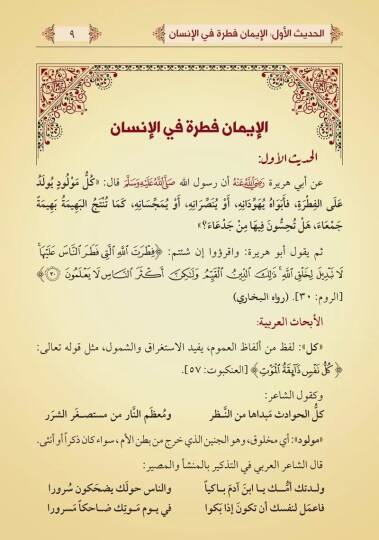 الحديث الأول: الإيمان فطرة في الإنسان
٩
الإيمان فطرة في الإنسان
الحديث الأول:
عن أبي هريرة رَضِيَ اللَّهُ عَنْهُ أن رسول الله صَلَّى اللَّهُ عَلَيْهِ وَسَلَّمَ قال: «كُلُّ مَوْلُودٍ يُولَدُ
عَلَى الفِطْرَةِ، فَأَبَوَاهُ يُهَوِّدَانِهِ، أَوْ يُنَصِّرَانِهِ، أَوْ يُمَجِّسَانِهِ، كَمَا تُنْتَجُ البَهِيمَةُ بَهِيمَةً
جَمْعَاءَ، هَلْ تُحِسُّونَ فِيهَا مِنْ جَدْعَاءَ؟»
ثم يقول أبو هريرة: واقرؤوا إن شئتم: ﴿فِطْرَتَ اللَّهِ الَّتِي فَطَرَ النَّاسَ عَلَيْهَا
لَا تَبْدِيلَ لِخَلْقِ اللَّهِ ذَٰلِكَ الدِّينُ الْقَيِّمُ وَلَٰكِنَّ أَكْثَرَ النَّاسِ لَا يَعْلَمُونَ ۝٣٠﴾
[الروم: ٣٠]. (رواه البخاري)
الأبحاث العربية:
«كل»: لفظ من ألفاظ العموم، يفيد الاستغراق والشمول، مثل قوله تعالى:
﴿كُلُّ نَفْسٍ ذَائِقَةُ الْمَوْتِ﴾ [العنكبوت: ٥٧].
وكقول الشاعر:
كلُّ الحوادث مَبداها من النَّظر ومُعظَم النَّار من مستصغَر الشرَر
«مولود»: أي مخلوق، وهو الجنين الذي خرج من بطن الأم، سواء كان ذكراً أو أنثى.
قال الشاعر العربي في التذكير بالمنشأ والمصير:
ولدتك أمُّك يا ابنَ آدمَ باكياً والناس حولَك يضحَكون سُرورا
فاعمَل لنفسك أن تكونَ إذا بَكوا في يوم مَوتِك ضاحكاً مَسرورا